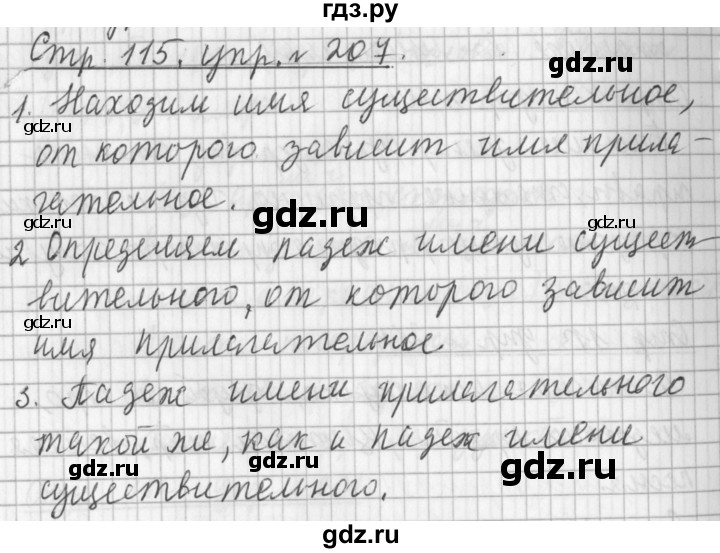 гдз.ру
Стр. 115. упр. № 207.
1. Находим имя существительное,
от которого зависит имя прила-
гательное.
2 Определяем падеж имени сущест
вительного, от которого зависит
имя прилагательное
3. Падеж имени прилагательного
такой же, как и падеж имени
существительного.
gdz.ru
gdz.ru
gdz.ru
gdz.ru
gdz.ru
gdz.ru
gdz.ru
gdz.ru
gdz.ru
gdz.ru
gdz.ru
gdz.ru
gdz.ru